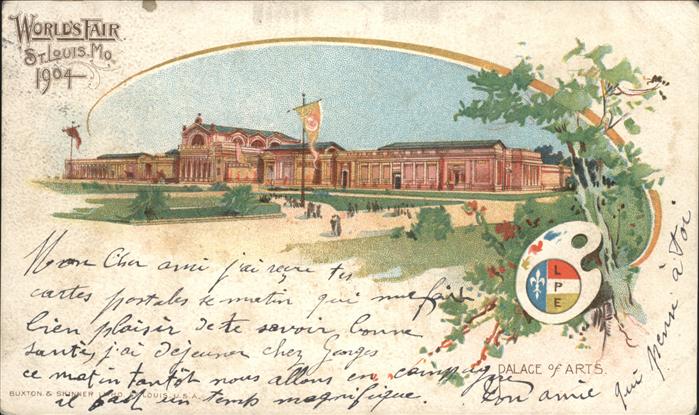 WORLD'S FAIR
ST. LOUIS, MO.
1904
Mon Cher ami j'ai reçue tes
cartes postales ce matin qui me fait
bien plaisir de te savoir bonne
santé, j'ai déjeuner chez Georges
ce matin tantôt nous allons en campagne
il fait un temps magnifique.
Ton amie qui pense à toi.
L P E
PALACE of ARTS.
BUXTON & SKINNER ST. LOUIS, U.S.A.